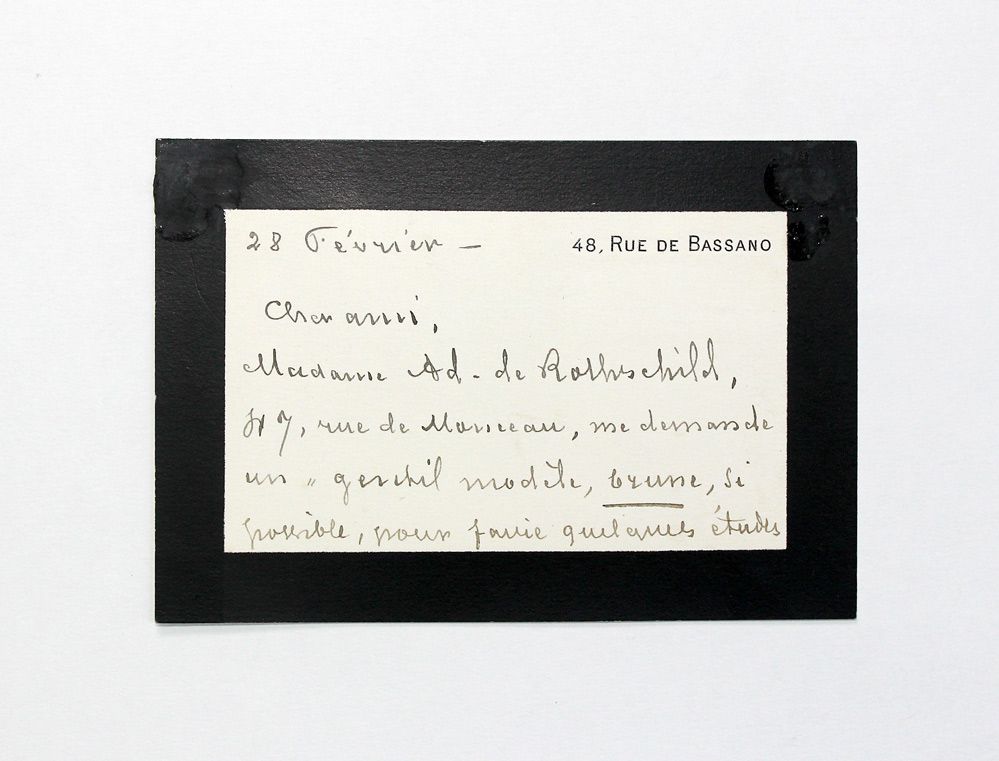 28 Février — 48, RUE DE BASSANO
Cher ami,
Madame Ad. de Rothschild,
47, rue de Monceau, me demande
un „ gentil modèle, brune, si
possible, pour faire quelques études